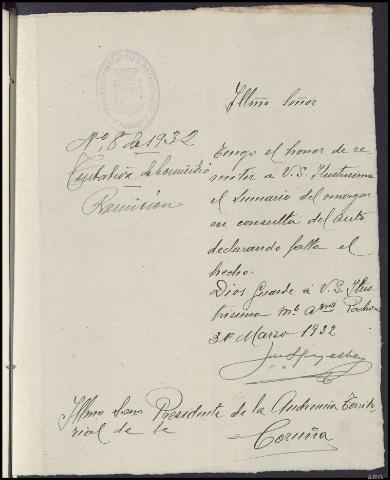 Illmo Señor
Nº 8 de 1932
Tentativa de homicidio
Remision
Tengo el honor de re
mitir a V.S. Ilustrisima
el Sumario del margen
en consulta del auto
declarando falta el
hecho.
Dios Guarde á V.S. Ilus
trisima ms ans Padron
30 Marzo 1932
Illmo Señor Presidente de la Audiencia Territo
rial de la
Coruña
ARG